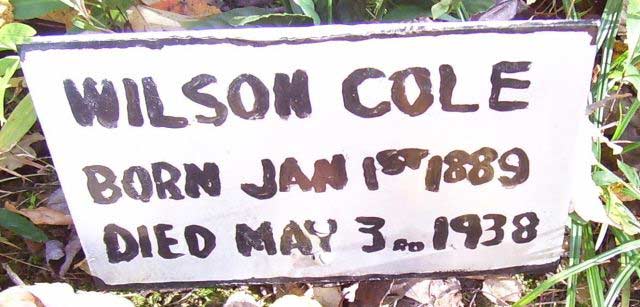 WILSON COLE
BORN JAN 1ST 1889
DIED MAY 3RD 1938